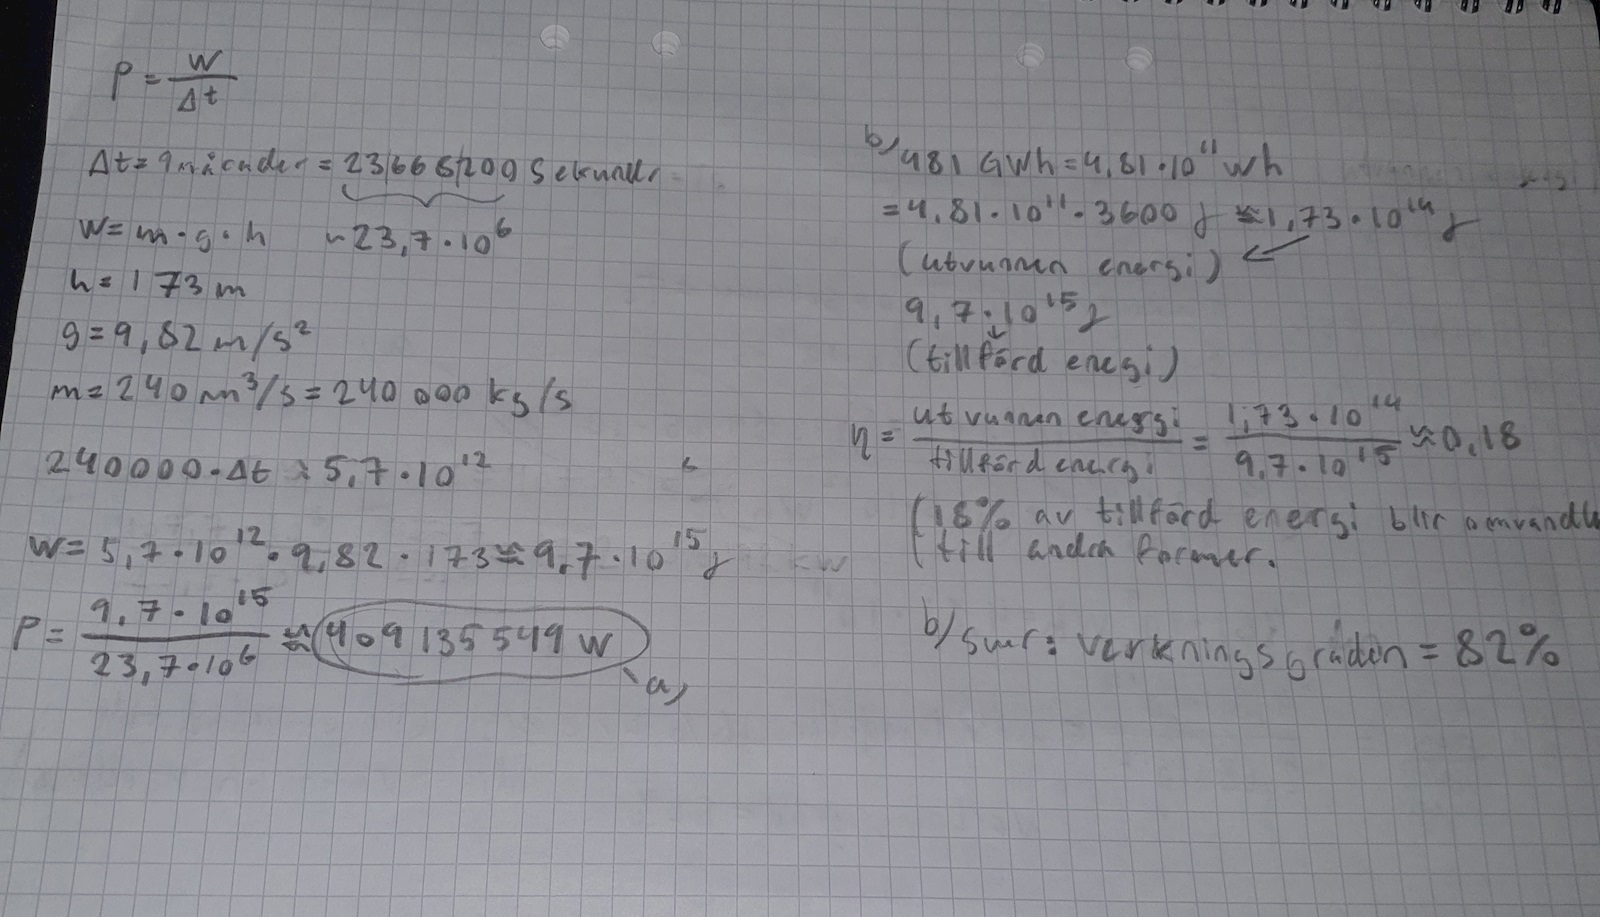 P = W/Δt
Δt = 9 månader = 23668200 Sekunder
W = m·g·h ~23,7·10⁶
h = 173 m
g = 9,82 m/s²
m = 240 m³/s = 240 000 kg/s
240000·Δt ≈ 5,7·10¹²
W = 5,7·10¹²·9,82·173 ≈ 9,7·10¹⁵ J
P = 9,7·10¹⁵/23,7·10⁶ ≈ 409 135 549 W
a)
b) 481 GWh = 4,81·10¹¹ Wh
= 4,81·10¹¹·3600 J ≈ 1,73·10¹⁴ J
(utvunnen energi) ←
9,7·10¹⁵ J
↓
(tillförd enegi)
η = utvunnen energi/tillförd energi = 1,73·10¹⁴/9,7·10¹⁵ ≈ 0,18
(18% av tillförd energi blir
till andra former.
b) svar: verkningsgraden = 82%